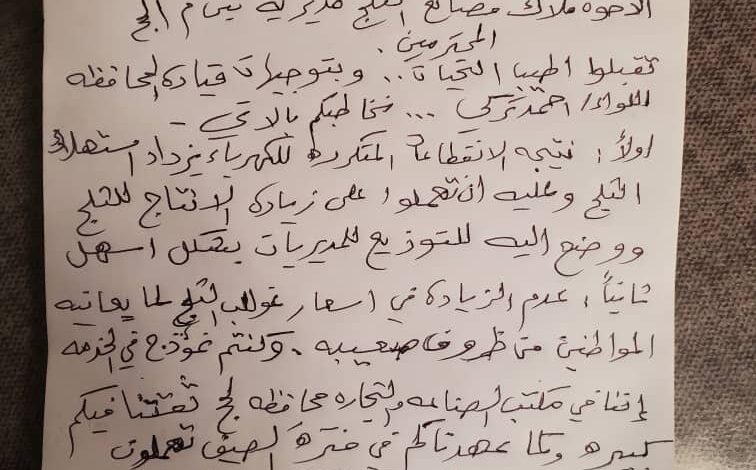 الاخوة ملاك مصانع الثلج مديرية تبن م لحج
المحترمين .
تقبلوا اطيب التحيات .. وبتوجيهات قيادة المحافظه
اللواء/ احمد تركي ... نخاطبكم بالاتي -
اولاً : نتيجه الانقطاعات المتكرره للكهرباء يزداد استهلاك
الثلج وعليه ان تعملوا على زيادة الانتاج للثلج
ووضع اليه للتوزيع للمديريات بشكل اسهل
ثانياً : عدم الزيادة في اسعار قوالب الثلج لما يعانيه
المواطنين من ظروف صعيبه . وكنتم نموذج في الخدمه
إننا في مكتب الصناعه والتجاره محافظه لحج ثقتنا فيكم
كبيره وكما عهدناكم في فترة الصيف تعملون